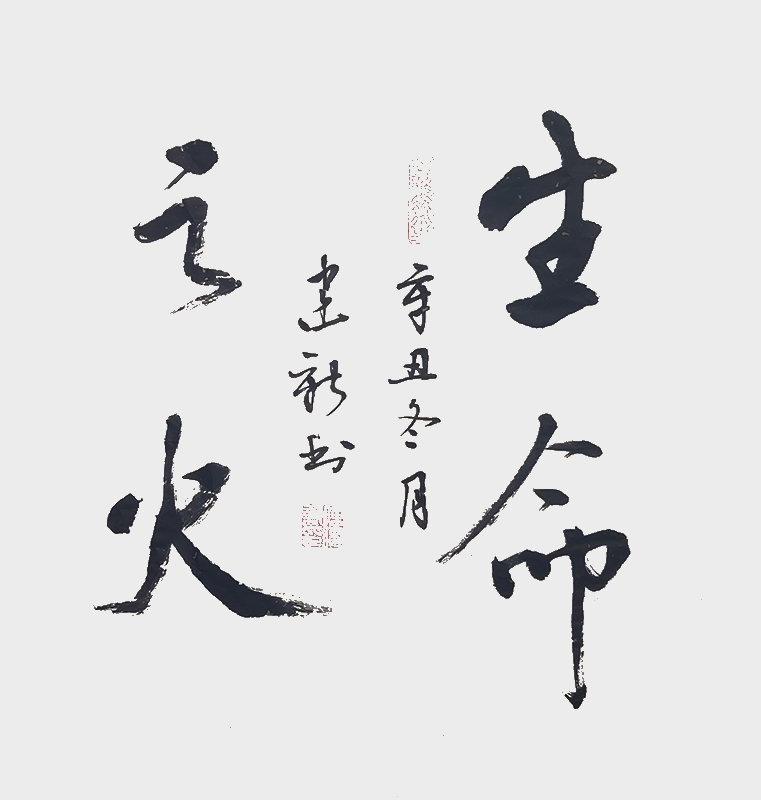 生命
辛丑冬月
建新书
之火